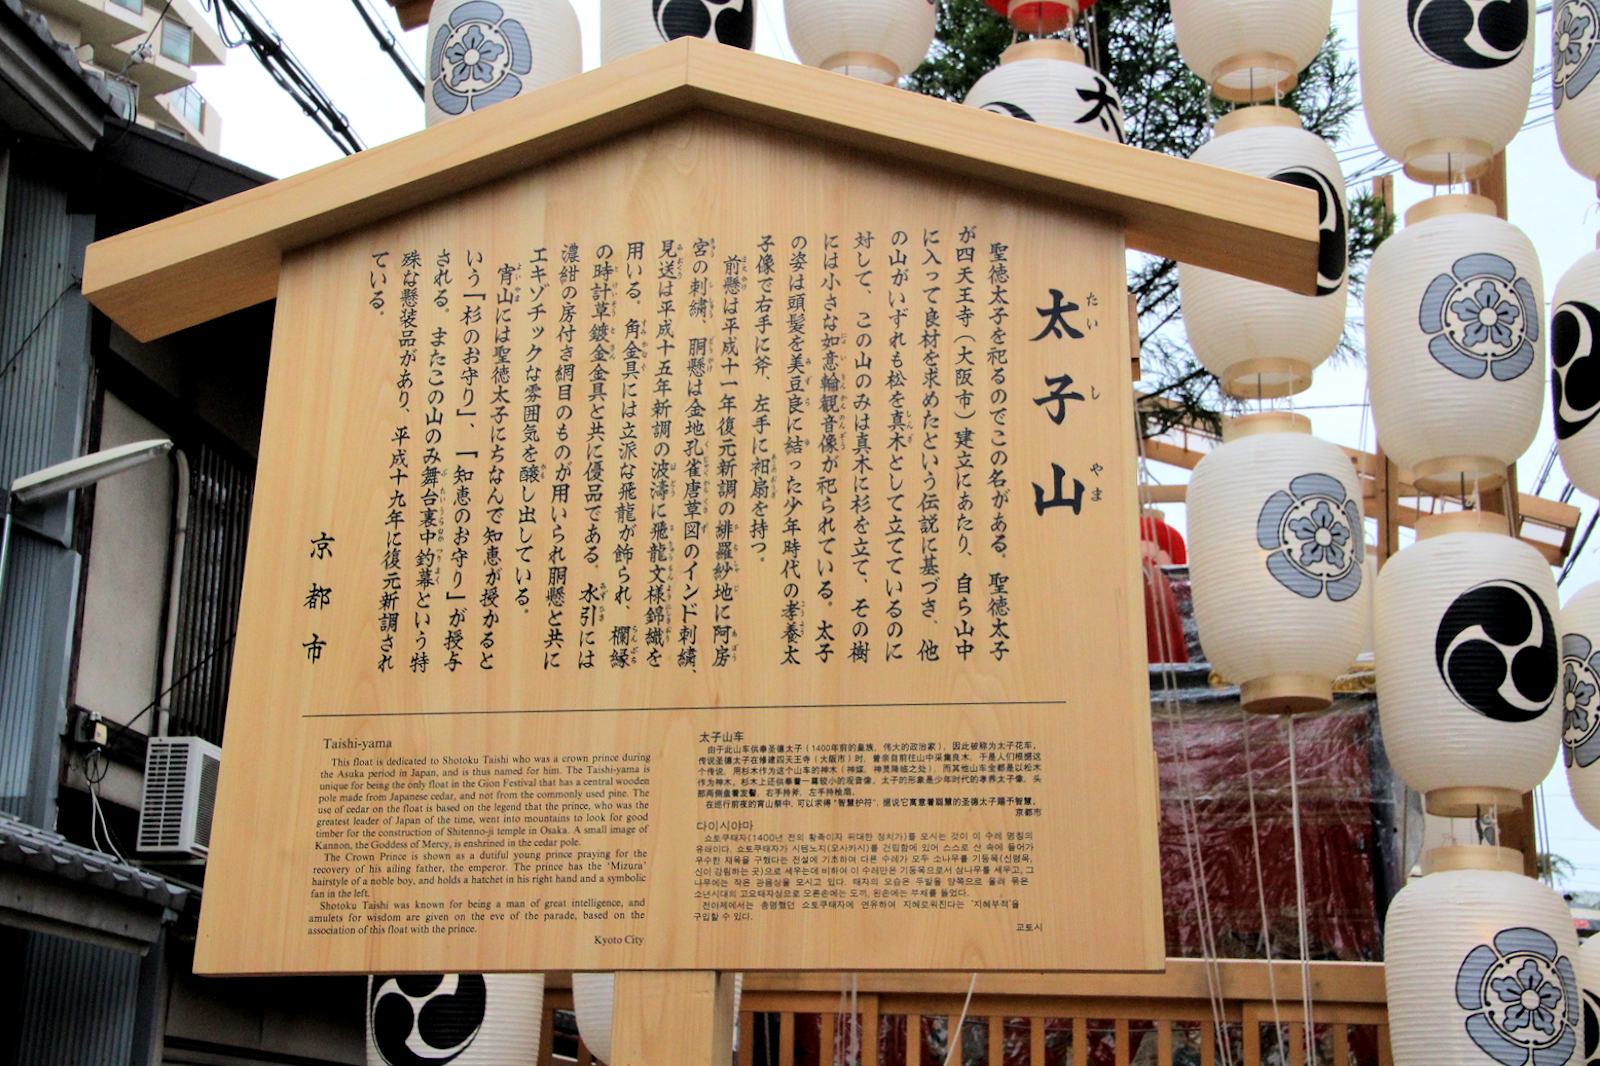 太子山
たいしやま
聖徳太子を祀るのでこの名がある、聖徳太子
が四天王寺（大阪市）建立にあたり、自ら山中
に入って良材を求めたという伝説に基づき、他
の山がいずれも松を真木として立てているのに
対して、この山のみは真木に杉を立て、その樹
には小さな如意輪観音像が祀られている。太子
の姿は頭髪を美豆良に結った少年時代の孝養太
子像で右手に斧、左手に衵扇を持つ。
前懸は平成十一年復元新調の緋羅紗地に阿房
宮の刺繍、胴懸は金地孔雀唐草図のインド刺繍、
見送は平成十五年新調の波濤に飛龍文様錦織を
用いる。角金具には立派な飛龍が飾られ、欄縁
の時計草鍍金金具と共に優品である。水引には
濃紺の房付き網目のものが用いられ胴懸と共に
エキゾチックな雰囲気を醸し出している。
宵山には聖徳太子にちなんで知恵が授かると
いう「杉のお守り」、「知恵のお守り」が授与
される。またこの山のみ舞台裏中釣幕という特
殊な懸装品があり、平成十九年に復元新調され
ている。
京都市
Taishi-yama
This float is dedicated to Shotoku Taishi who was a crown prince during
the Asuka period in Japan, and is thus named for him. The Taishi-yama is
unique for being the only float in the Gion Festival that has a central wooden
pole made from Japanese cedar, and not from the commonly used pine. The
use of cedar on the float is based on the legend that the prince, who was the
greatest leader of Japan of the time, went into mountains to look for good
timber for the construction of Shitenno-ji temple in Osaka. A small image of
Kannon, the Goddess of Mercy, is enshrined in the cedar pole.
The Crown Prince is shown as a dutiful young prince praying for the
recovery of his ailing father, the emperor. The prince has the ‘Mizura’
hairstyle of a noble boy, and holds a hatchet in his right hand and a symbolic
fan in the left.
Shotoku Taishi was known for being a man of great intelligence, and
amulets for wisdom are given on the eve of the parade, based on the
association of this float with the prince.
Kyoto City
太子山车
由于此山车供奉圣德太子（1400年前的皇族，伟大的政治家），因此被称为太子花车，
传说圣德太子在修建四天王寺（大阪市）时，曾亲自前往山中采集良木，于是人们根据这
个传说，用杉木作为这个山车的神木（神媒，神灵降临之处），而其他山车全都是以松木
作为神木。杉木上还供奉着一尊较小的观音像，太子的形象是少年时代的孝养太子像，头
部两侧盘着发髻，右手持斧，左手持桧扇。
在巡行前夜的宵山祭中，可以求得“智慧护符”，据说它寓意着聪慧的圣德太子赐予智慧。
京都市
다이시야마
쇼토쿠태자(1400년 전의 황족이자 위대한 정치가)를 모시는 것이 이 수레 명칭의
유래이다. 쇼토쿠태자가 시텐노지(오사카시)를 건립함에 있어 스스로 산 속에 들어가
우수한 재목을 구했다는 전설에 기초하여 다른 수레가 모두 소나무를 기둥목(신령목,
신이 강림하는 곳)으로 세우는데 비하여 이 수레만은 기둥목으로서 삼나무를 세우고, 그
나무에는 작은 관음상을 모시고 있다. 태자의 모습은 두발을 양쪽으로 올려 묶은
소년시대의 고요태자상으로 오른손에는 도끼, 왼손에는 부채를 들었다.
전야제에서는 총명했던 쇼토쿠태자에 연유하여 지혜로워진다는 ‘지혜부적’을
구입할 수 있다.
교토시
太